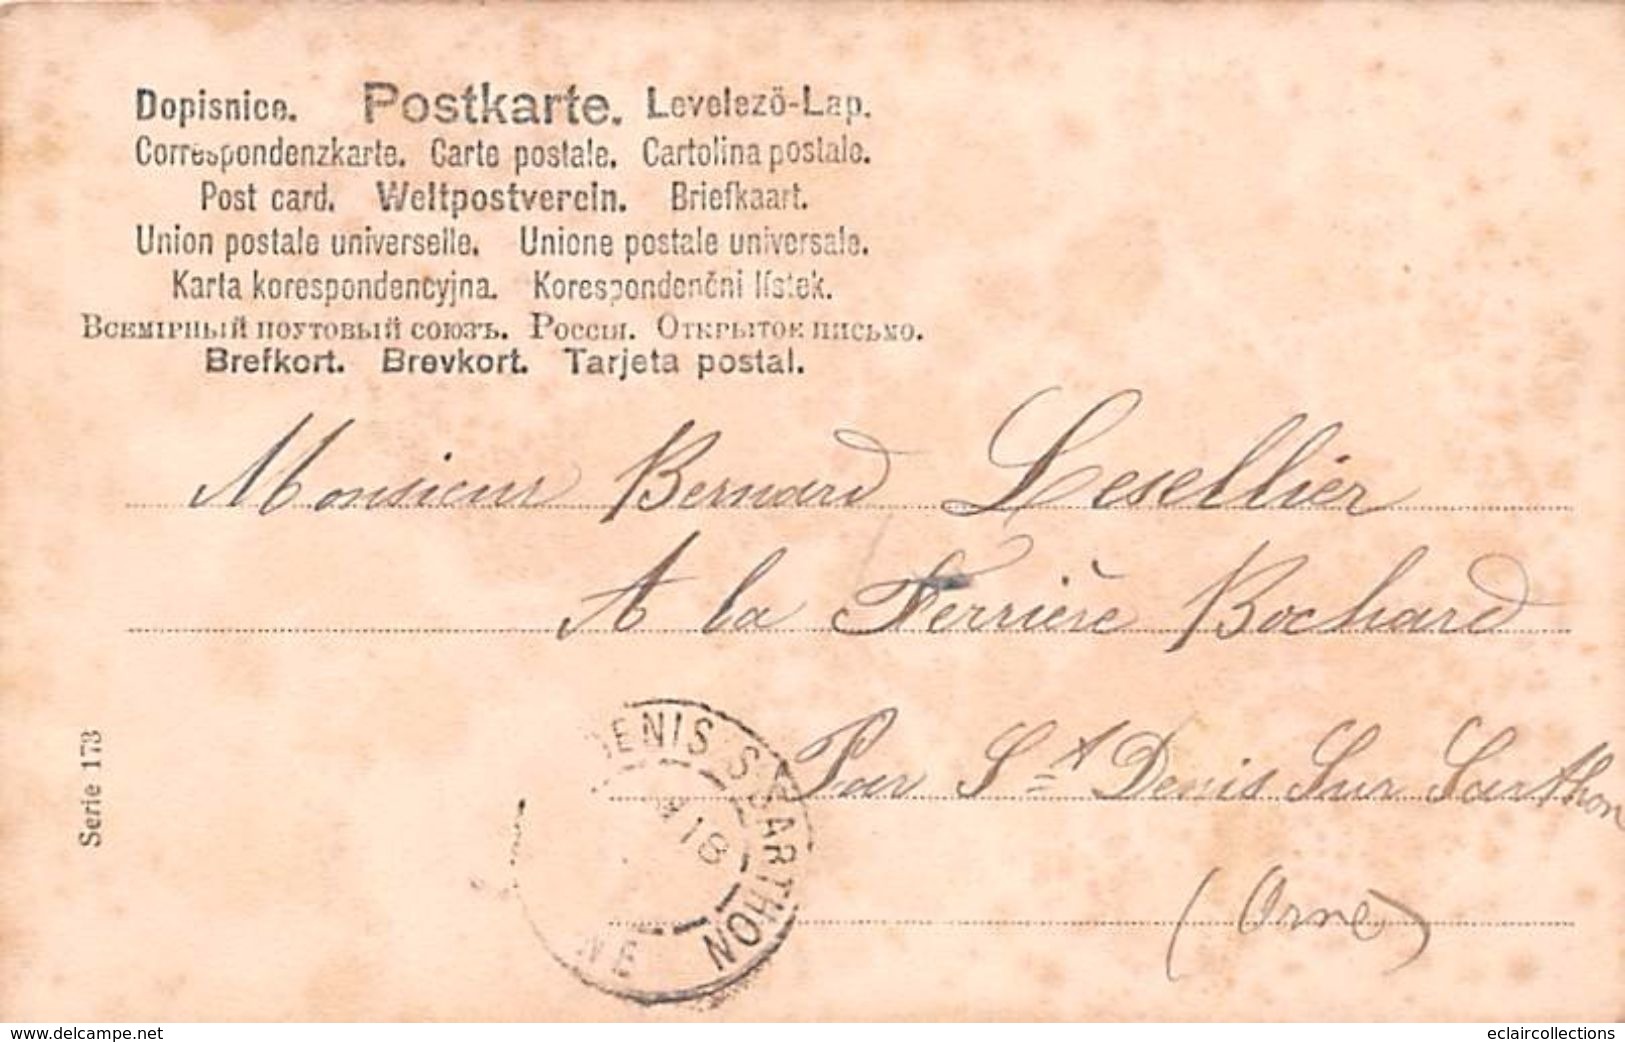 Dopisnice. Postkarte. Levelező-Lap.
Correspondenzkarte. Carte postale. Cartolina postale.
Post card. Weltpostverein. Briefkaart.
Union postale universelle. Unione postale universale.
Karta korespondencyjna. Korespondenční lístek.
Всемірный поутовый союзъ. Россія. Открытое письмо.
Brefkort. Brevkort. Tarjeta postal.
Monsieur Bernard Lesellier
A la Ferrière Bochard
Par St Denis Sur Sarthon
(Orne)
DENIS S. SARTHON
18
NE
Serie 173
www.delcampe.net
eclaircollections